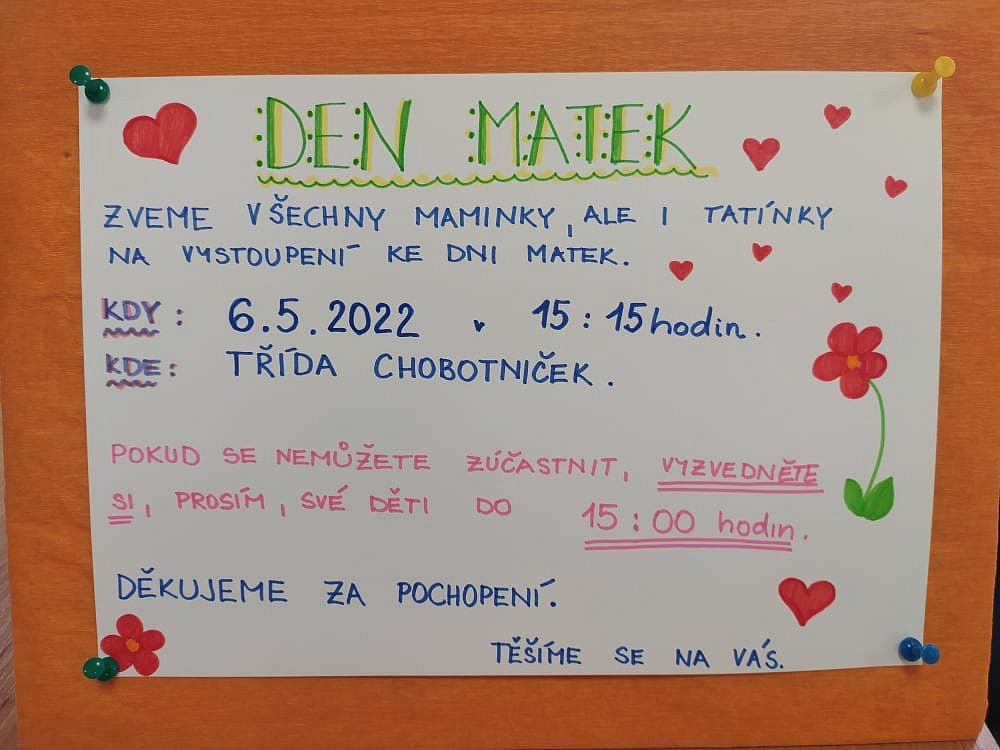 DEN MATEK
ZVEME VŠECHNY MAMINKY, ALE I TATÍNKY
NA VYSTOUPENÍ KE DNI MATEK.
KDY: 6.5.2022 15:15 hodin.
KDE: TŘÍDA CHOBOTNIČEK.
POKUD SE NEMŮŽETE ZÚČASTNIT, VYZVEDNĚTE
SI, PROSÍM, SVÉ DĚTI DO 15:00 hodin.
DĚKUJEME ZA POCHOPENÍ.
TĚŠÍME SE NA VÁS.